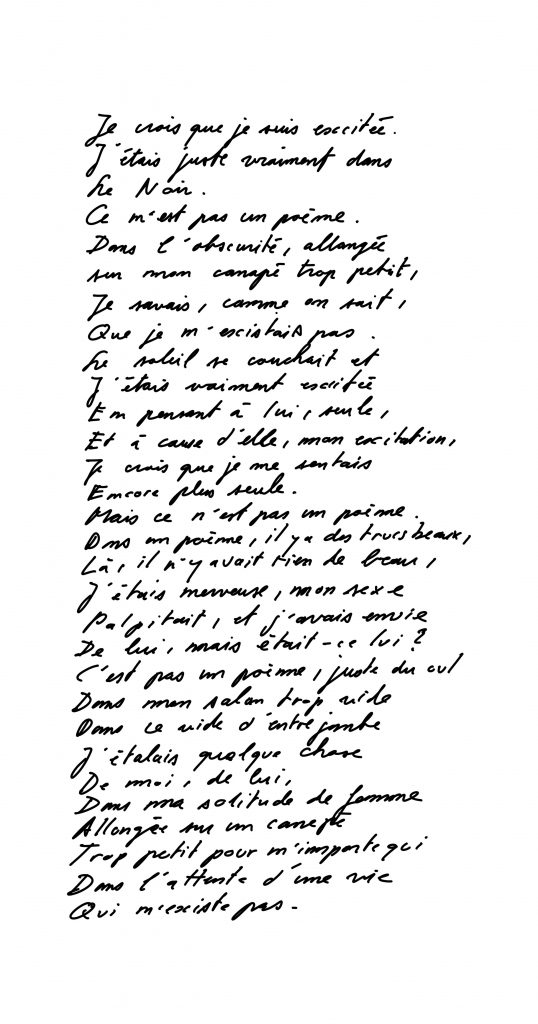 Je crois que je suis excitée.
J'étais juste vraiment dans
Le Noir.
Ce n'est pas un poème.
Dans l'obscurité, allongée
sur mon canapé trop petit,
Je savais, comme on sait,
Que je n'existais pas.
Le soleil se couchait et
J'étais vraiment excitée
En pensant à lui, seule,
Et à cause d'elle, mon excitation,
Je crois que je me sentais
Encore plus seule.
Mais ce n'est pas un poème.
Dans un poème, il y a des trucs beaux,
Là, il n'y avait rien de beau,
J'étais nerveuse, mon sexe
Palpitait, et j'avais envie
De lui, mais était-ce lui ?
C'est pas un poème, juste du cul
Dans mon salon trop vide
Dans ce vide d'entrejambe
J'étalais quelque chose
De moi, de lui,
Dans ma solitude de femme
Allongée sur un canapé
Trop petit pour n'importe qui
Dans l'attente d'une vie
Qui n'existe pas.